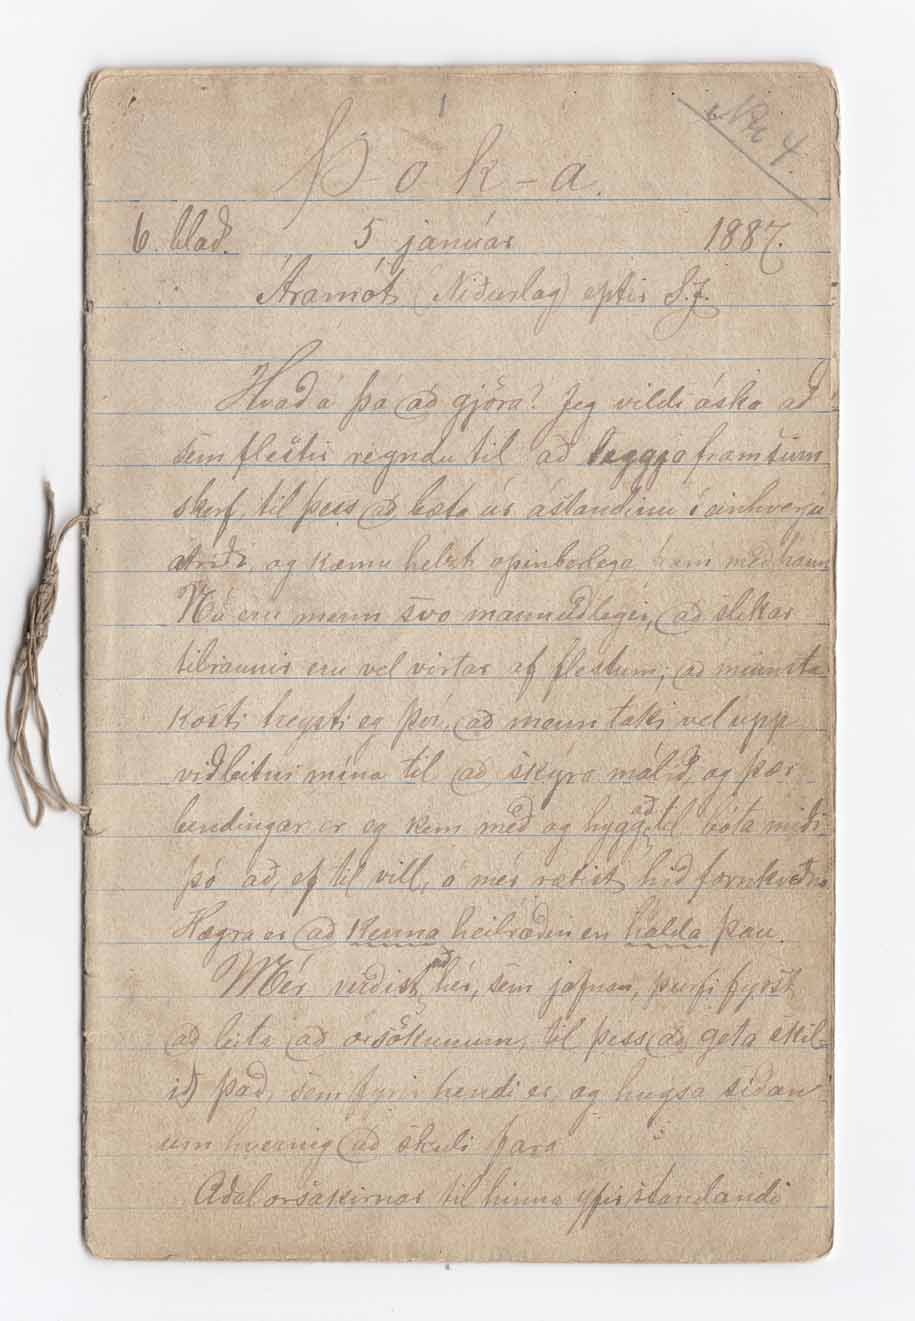 1
No 4
Þ-o-k-a.
6. blað. 5 janúar 1887.
Áramót (Niðurlag) eptir S.J.
Hvað á þá að gjöra? Jeg vildi óska að
sem flestir reyndu til að leggja fram sinn
skerf, til þess að bæta úr ástandinu í einhverju
atriði, og kæmu helzt opinberlega fram með hann
Nú eru menn svo mannúðlegir, að slíkar
tilraunir eru vel virtar af flestum; að minnsta
kosti treysti eg því, að menn taki vel upp
viðleitni mína til að skýra málið, og þær
bendingar er eg kem með og hygg að til bóta miði
þó að, ef til vill, á mér rætist hið fornkveðna
Hægra er að kenna heilræðin en halda þau.
Mér virðist að hér, sem jafnan, þurfi fyrst
að leita að orsökunum, til þess að geta skil-
ið það, sem fyrir hendi er, og hugsa síðan
um hvernig að skuli fara
Aðal orsakirnar til hinna yfirstandandi